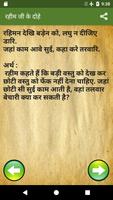 9:38
रहीम जी के दोहे
रहिमन देखि बड़ेन को, लघु न दीजिए
डारि.
जहां काम आवे सुई, कहा करे तरवारि.
अर्थ :
रहीम कहते हैं कि बड़ी वस्तु को देख कर
छोटी वस्तु को फेंक नहीं देना चाहिए.
जहां छोटी सी सुई काम आती है, वहां तलवार
बेचारी क्या कर सकती है?